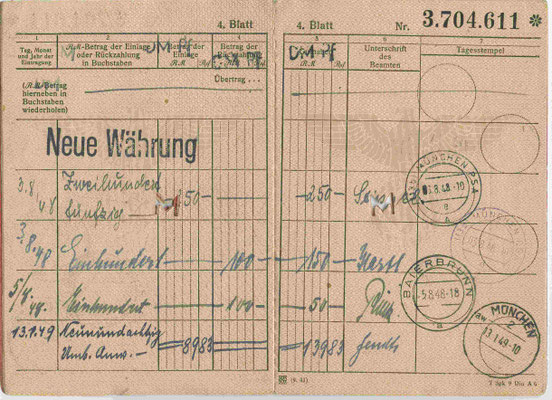 4. Blatt
4. Blatt Nr. 3.704.611 *
1 2 3 4
Tag, Monat und Jahr der Eintragung
R.M.-Betrag der Einlage oder Rückzahlung in Buchstaben
Betrag der Einlage
RM Rpf
Betrag der Rückzahlung
DM Pf
DM Pf
Unterschrift des Beamten
Tagesstempel
(R.M.-Betrag hierneben in Buchstaben wiederholen)
Übertrag . . .
Neue Währung
3.8.48 Zweihundert fünfzig M 250 - 250 - M
MÜNCHEN PSA
3.8.48-10
a
3.8.48 Einhundert 100 - 150 -
Einhundert 100 - 50 -
BAIERBRUNN
5.8.48-18
a
13.1.49 Neunundachtzig 8983 13983
MÜNCHEN
2
aw
13.1.49-10